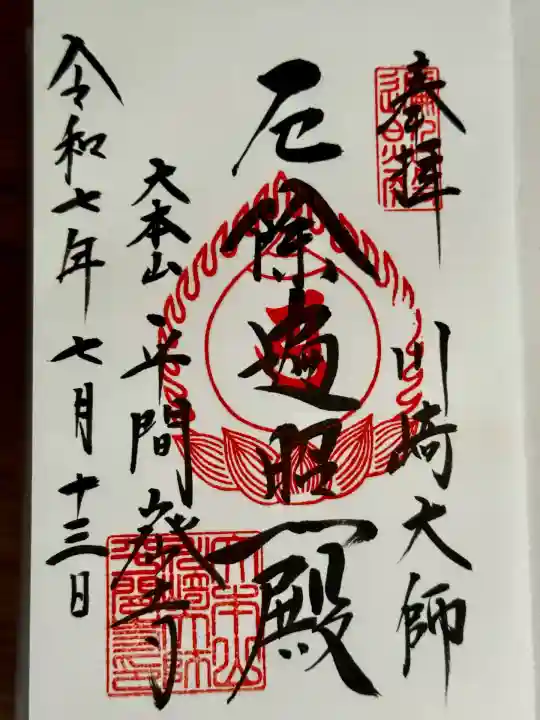 奉拝
川崎大師
厄除遍照殿
大本山 平間寺
令和七年七月十三日